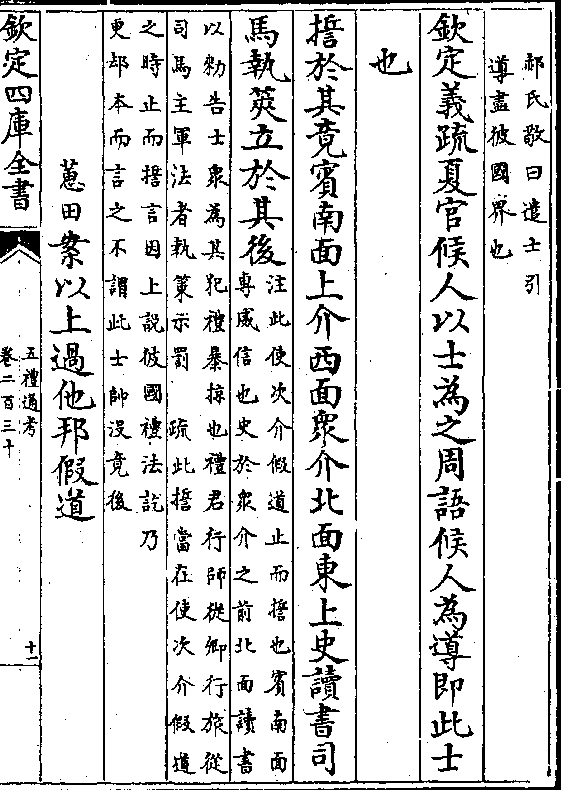 郝氏敬曰遣士引
導盡彼國界也
欽定義疏夏官候人以士為之周語候人為導即此士
也
誓於其竟賓南面上介西面衆介北面東上史讀書司
馬執筴立於其後
注此使次介假道止而誓也賓南面
專威信也史於衆介之前北面讀書
以勑告士衆為其犯禮暴掠也禮君行師從卿行旅從
司馬主軍法者執策示罰　疏此誓當在使次介假道
之時止而誓言因上説彼國禮法訖乃
更却本而言之不謂此士帥沒竟後
蕙田案以上過他邦假道
欽定四庫全書
五禮通考
卷二百三十
十一